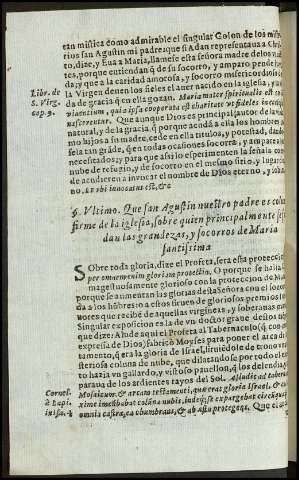 tan mistica como admirable el singular Colon de los miste
rios san Agustin mi padre: que si Adan representaua a Chris
to, dize, y Eua a Maria, llamese esta señora madre de los viuien
tes, porque entiendan que de su socorro, y amparo pende
da; y que a la caridad amorosa, y socorro misericordioso de
la Virgen deuen los fieles el auer nacido en la iglesia, y
da de gracia que en ella gozan. Maria mater spiritualis est
viuentium, quia ipsa cooperata est charitate vt fideles in ecclesia
nascerentur. Que aunque Dios es principal autor de la vida
natural, y de la gracia, que porque acudã a ella los hombres co
mo hijos a su madre, cede en ella titulos, y potestad, dando
sela tan grãde, que en todas ocasiones socorra, y ampare
necessitados; y para que assi lo esperimenten la señala con
nube de refugio, y de socorro en el mesmo sitio, y lugar
de acudieren a inuocar el nombre de Dios eterno, y
no. est &c
Libr. de
S. Virg.
cap. 9.
§. Vltimo. Que san Agustin nuestro padre es colu
firme de la iglesia, sobre quien principalmente se
dan las grandezas, y socorros de Maria
santissima
SObre toda gloria, dize el Profeta, sera esta proteccion
per omnem gloriam protectio. O porque se halla
magestuosamente glorioso con la proteccion de Ma
porque se aumentan las glorias desta Señora con el socorro
da a los hõbres: o a estos siruen de gloriosos premios los fa
uores que recibē de aquellas virgineas, y soberanas
Singular exposicion es la de vn doctor grande desta
que dize: Alude aquel Profeta al Tabernaculo,
expressa de Dios fabricò Moyses para poner el arca del
tamento, que era la gloria de Israel, siruiēdole de trono
isteriosa coluna de nube, que dilatandose por todo el
to hazia vn gallardo, y vistoso pauellon, que los defendia
paraua de los ardientes rayos del Sol. Alludit ad tabernac
Mosaicum, & arcam testamenti, quae erat gloria Israel, &
xime incubabat colũna nubis, indeque se expargebat circa
omnia castra, ea obumbrans, & ab aestu protegens. Que
Corneli.
à Lapi.
in Isa. 4